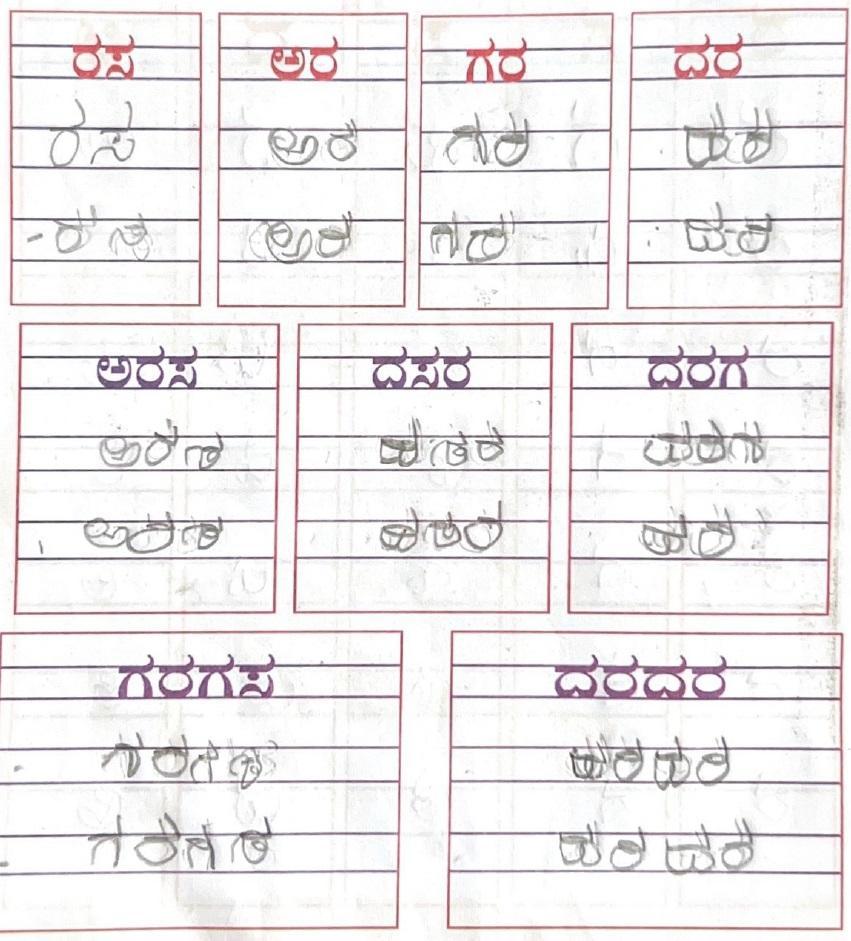 ರಸ ಅರ ಗರ ದರ
ರಸ ಅರ ಗರ ದರ
ರಸ ಅರ ಗರ ದರ
ಅರಸ ದಸರ ದರಗ
ಅರಸ ದಸರ ದರಗ
ಅರಸ ದಸರ ದರ
ಗರಗಸ ದರದರ
ಗರಗಸ ದರದರ
ಗರಗಸ ದರದರ